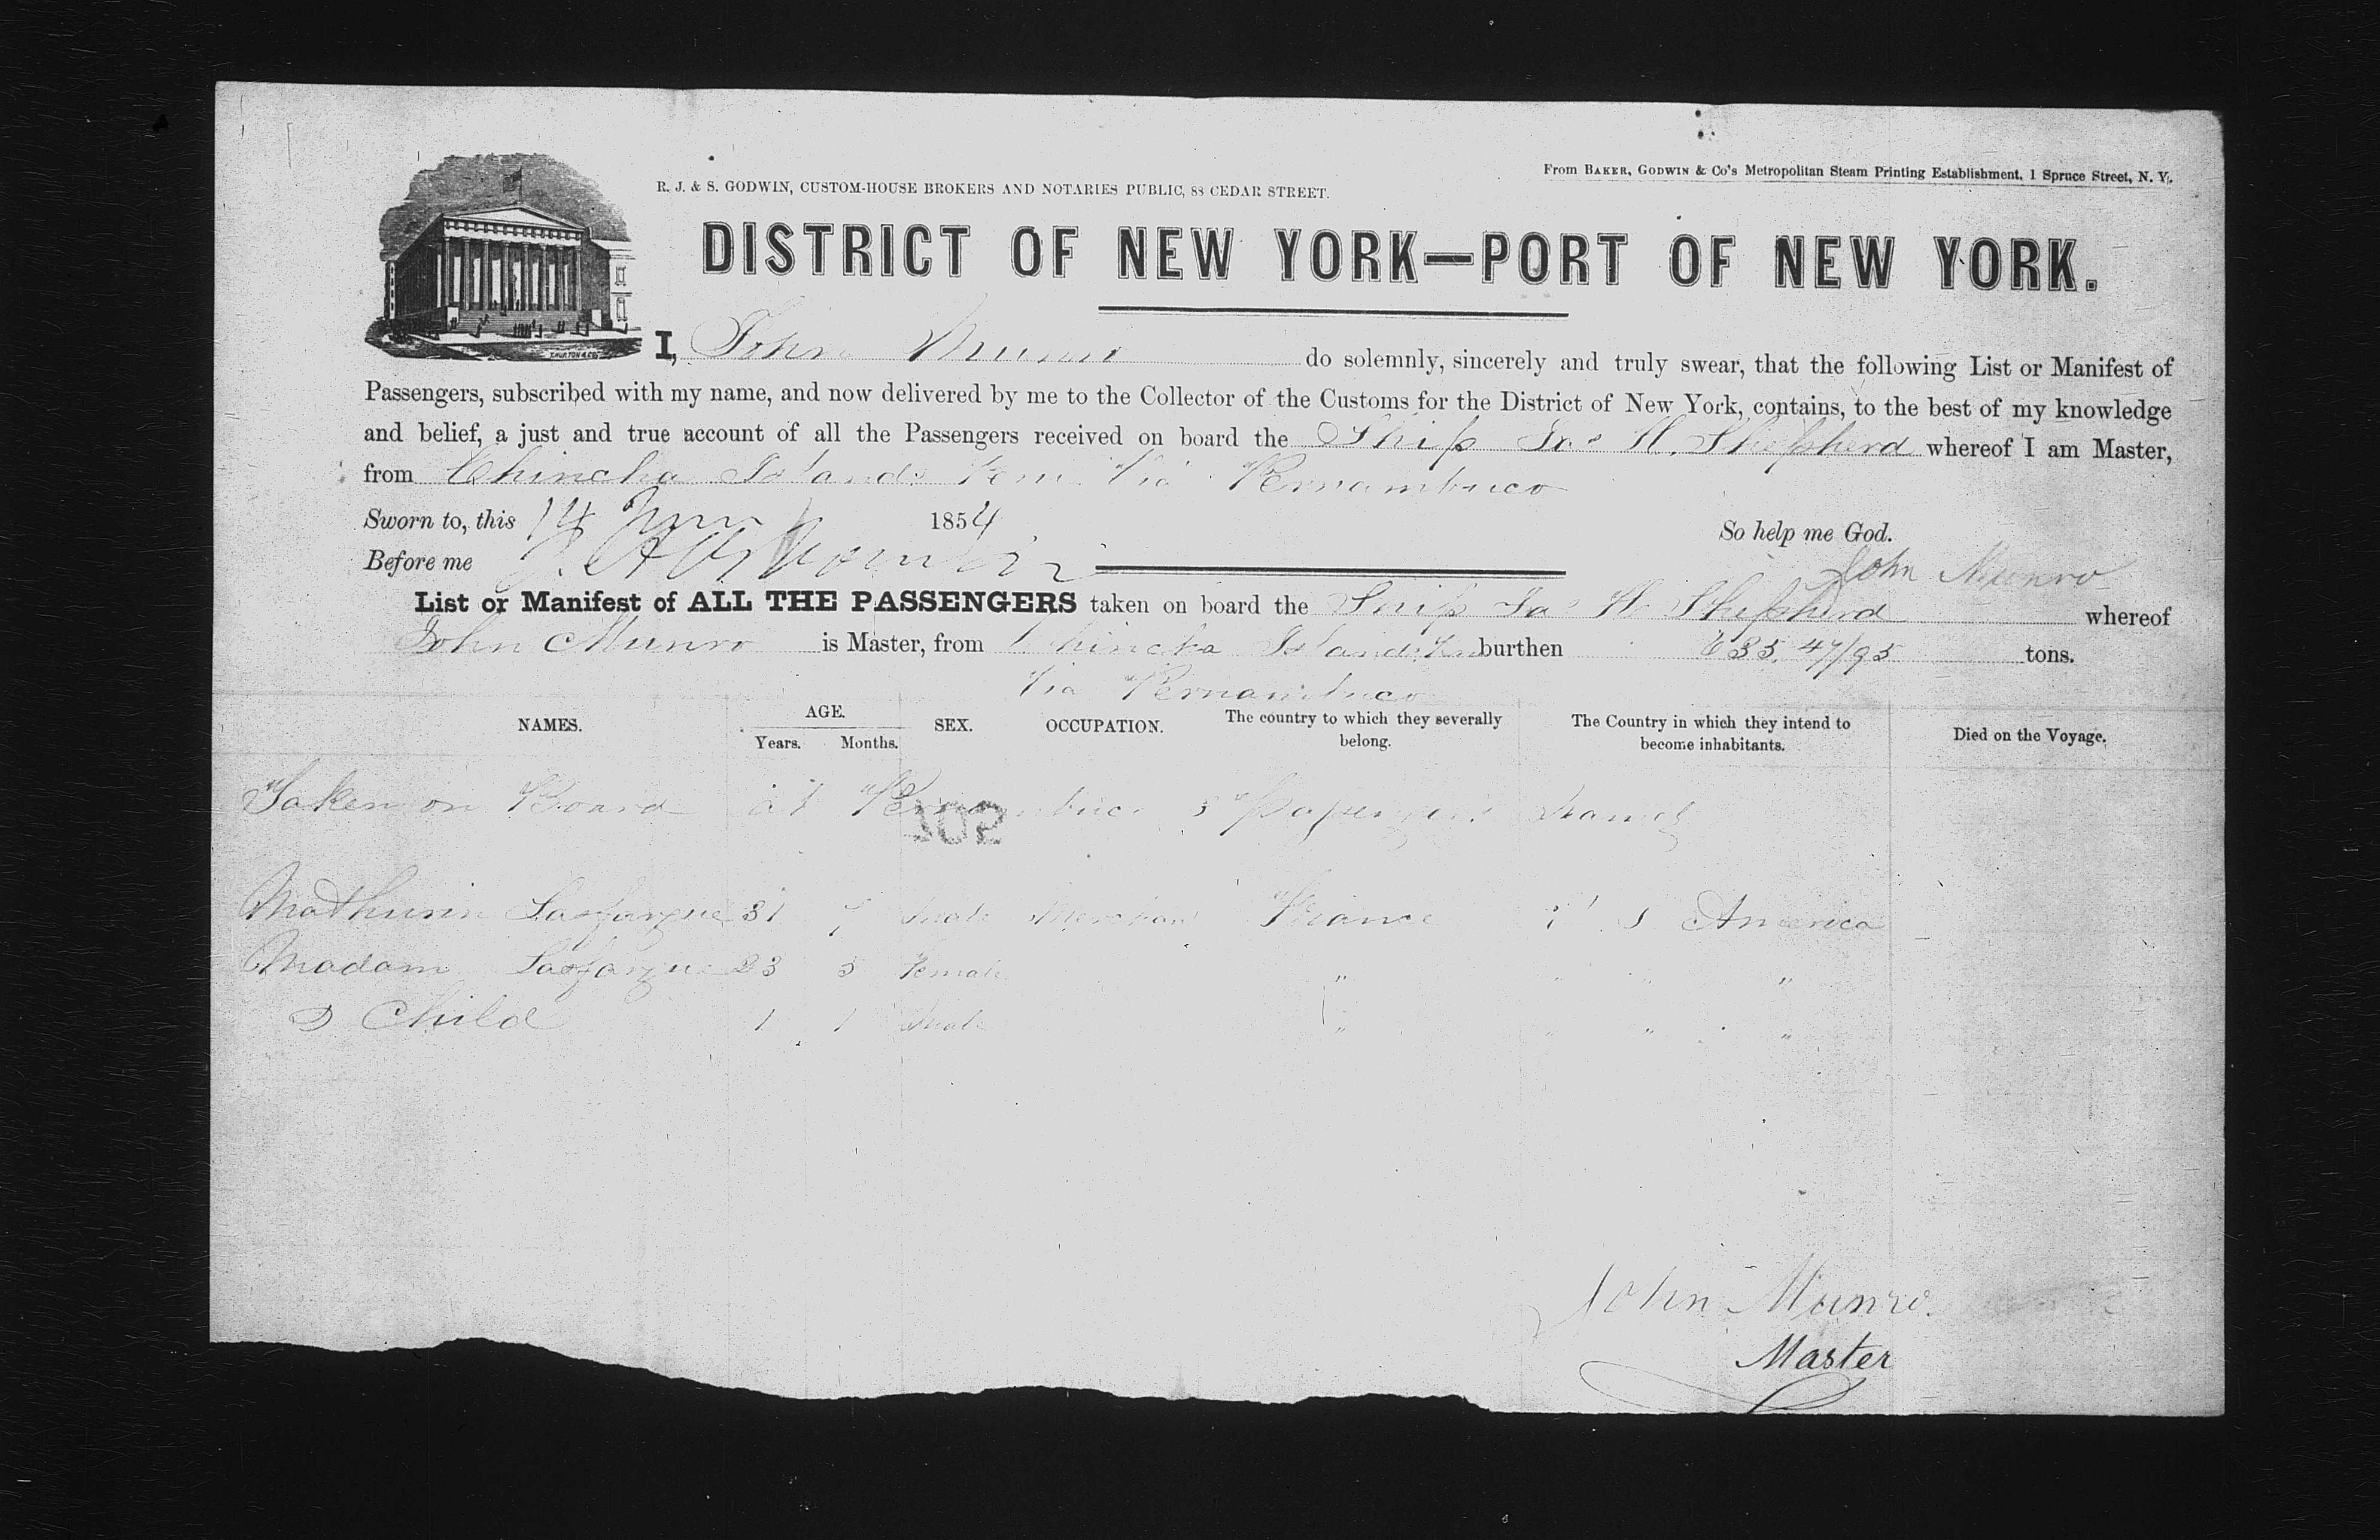 From BAKER, GODWIN & Co's Metropolitan Steam Printing Establishment, 1 Spruce Street, N. Y.
R. J. & S. GODWIN, CUSTOM-HOUSE BROKERS AND NOTARIES PUBLIC, 88 CEDAR STREET.
DISTRICT OF NEW YORK—PORT OF NEW YORK.
I, John Munro do solemnly, sincerely and truly swear, that the following List or Manifest of
Passengers, subscribed with my name, and now delivered by me to the Collector of the Customs for the District of New York, contains, to the best of my knowledge
and belief, a just and true account of all the Passengers received on board the Ship Jas H. Shepherd whereof I am Master,
from Chincha Islands Peru Via Pernambuco
Sworn to, this 14 June 1854 So help me God.
Before me
John Munro
List or Manifest of ALL THE PASSENGERS taken on board the Ship Jas H Shepherd whereof
John Munro is Master, from Chincha Islands Peru burthen 635 47/95 tons.
Via Pernambuco
NAMES. AGE. Years. Months. SEX. OCCUPATION. The country to which they severally belong. The Country in which they intend to become inhabitants. Died on the Voyage.
Taken on Board at Pernambuco 3 Passengers Named
102
Mathurin Lasfargue 31 7 Male Merchant France U S America
Madam Lasfargue 23 5 Female " " " "
D Child 1 1 Male " " " "
John Munro
Master